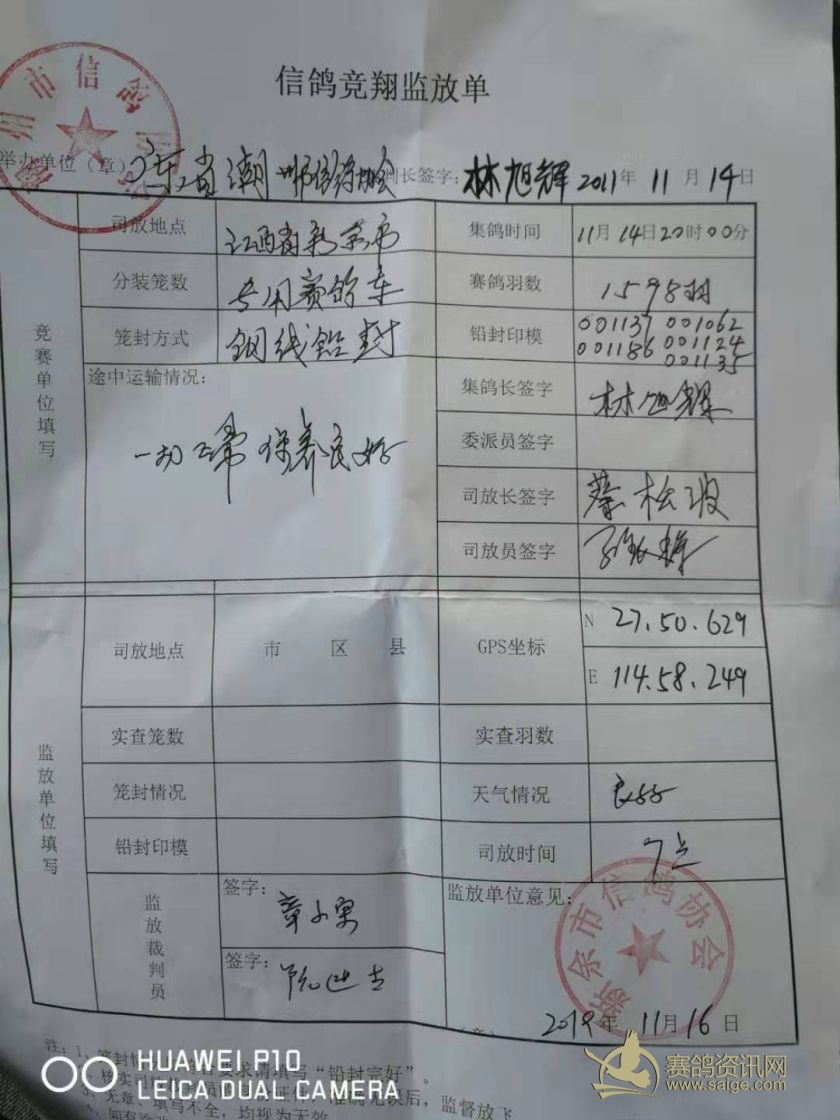 信鸽竞翔监放单
举办单位（章） 广东省潮州市信鸽协会 判长签字：林旭辉 2011年 11月 14日
州市信鸽
竞赛单位填写
司放地点 江西省新余市 集鸽时间 11月14日20时00分
分装笼数 专用赛鸽车 赛鸽羽数 1598羽
笼封方式 钢线铅封 铅封印模 001137 001062
001186 001124
001135
途中运输情况： 集鸽长签字 林旭辉
一切正常 保养良好 委派员签字
司放长签字 蔡松波
司放员签字
监放单位填写
司放地点 市 区 县 GPS坐标 N 27.50.629
E 114.58.249
实查笼数 实查羽数
笼封情况 天气情况 良好
铅封印模 司放时间 7点
监放裁判员 签字： 章小
签字： 监放单位意见：
新余市信鸽协会
2019年 11月 16日
注：1、笼封情况 要求请填写“铅封完好”。
准确无误后，监督放飞
3、无章、填写不全、均视为无效
HUAWEI P10
LEICA DUAL CAMERA
赛鸽资讯网
www.saige.com